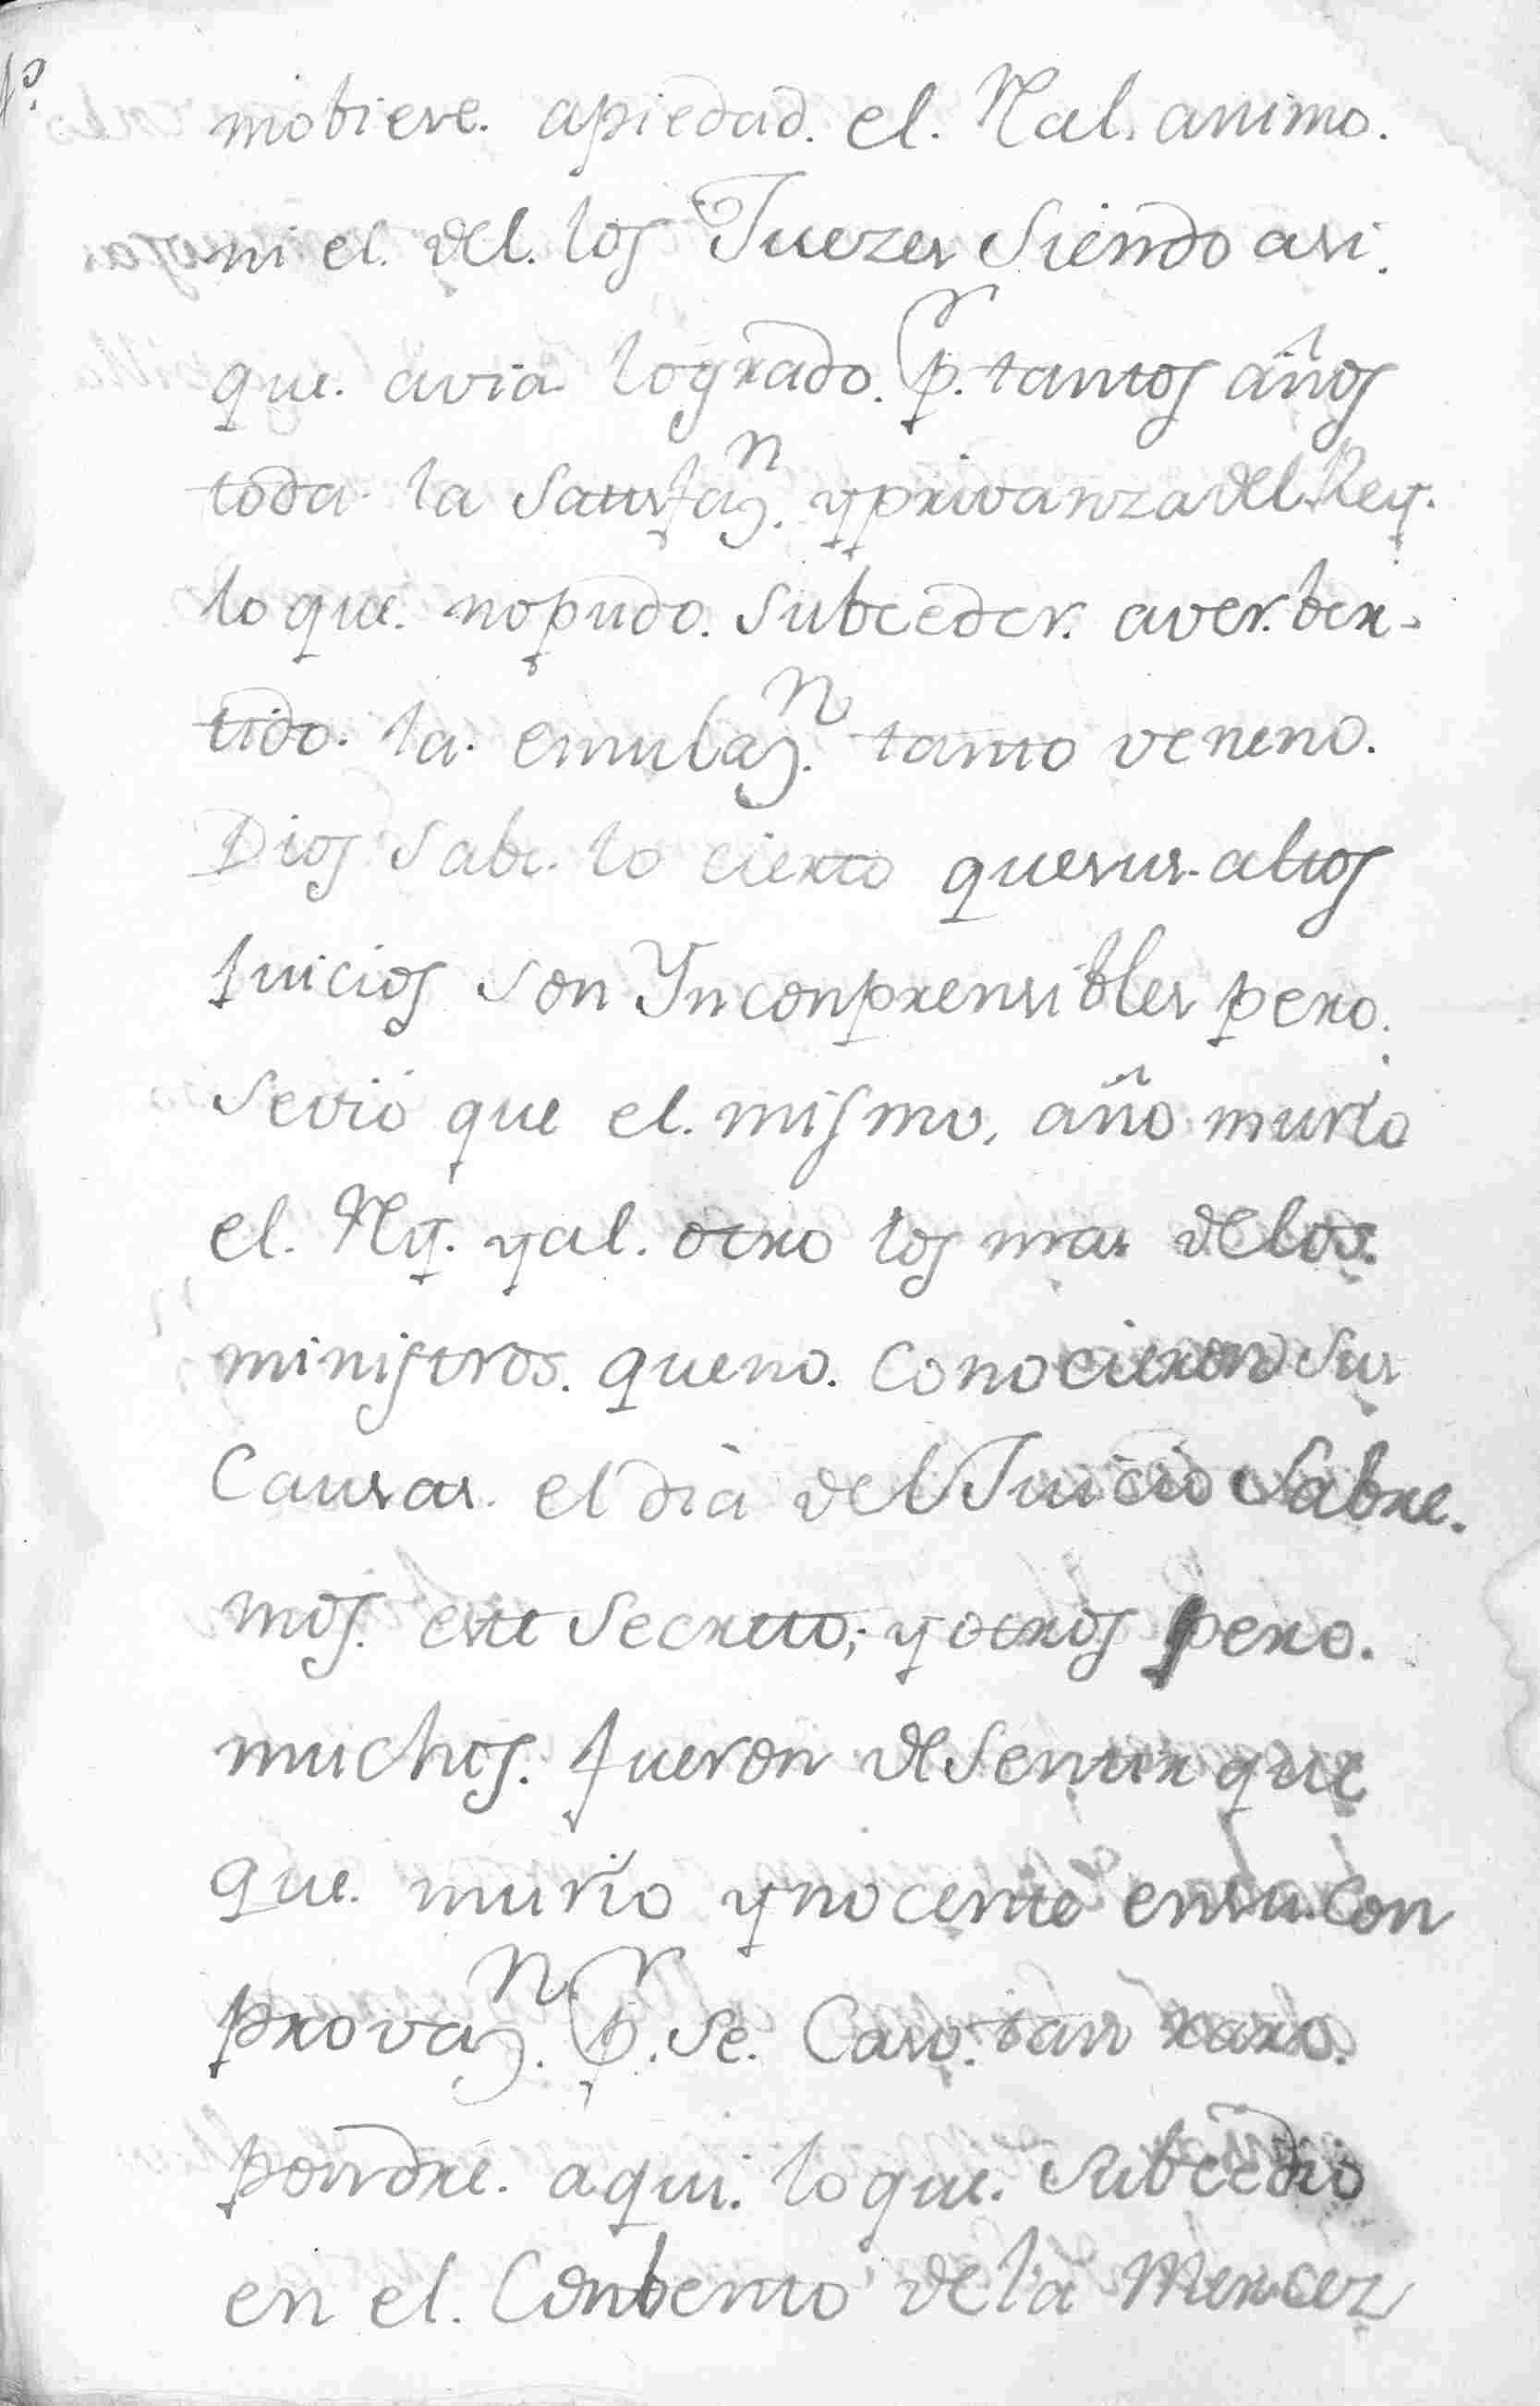 mobiere. apiedad. el. Ral. animo.
ni el. del. los Juezes siendo asi.
que. avia logrado. pr. tantos años
toda. la satisfazn. yprivanza del. Rey.
lo que. nopudo. subceder. aver. ber-
tido. la. emulazn. tanto veneno.
Dios sabe. lo cierto quesus. altos
Juicios son Ynconprensibles pero.
sevió que el. mismo. año murio
el. Rey. yal. otro los mas delos.
ministros. queno. conocieron sus
Causas. el dia del Juicio sabre.
mos. este secretto; y otros pero.
muchos. fueron desentir que
que. murio ynocente ensu. con
provazn. pr. se. Caso. tan raro.
pondre. aqui. lo que. subcedio
en el. Conbento de la Mercez